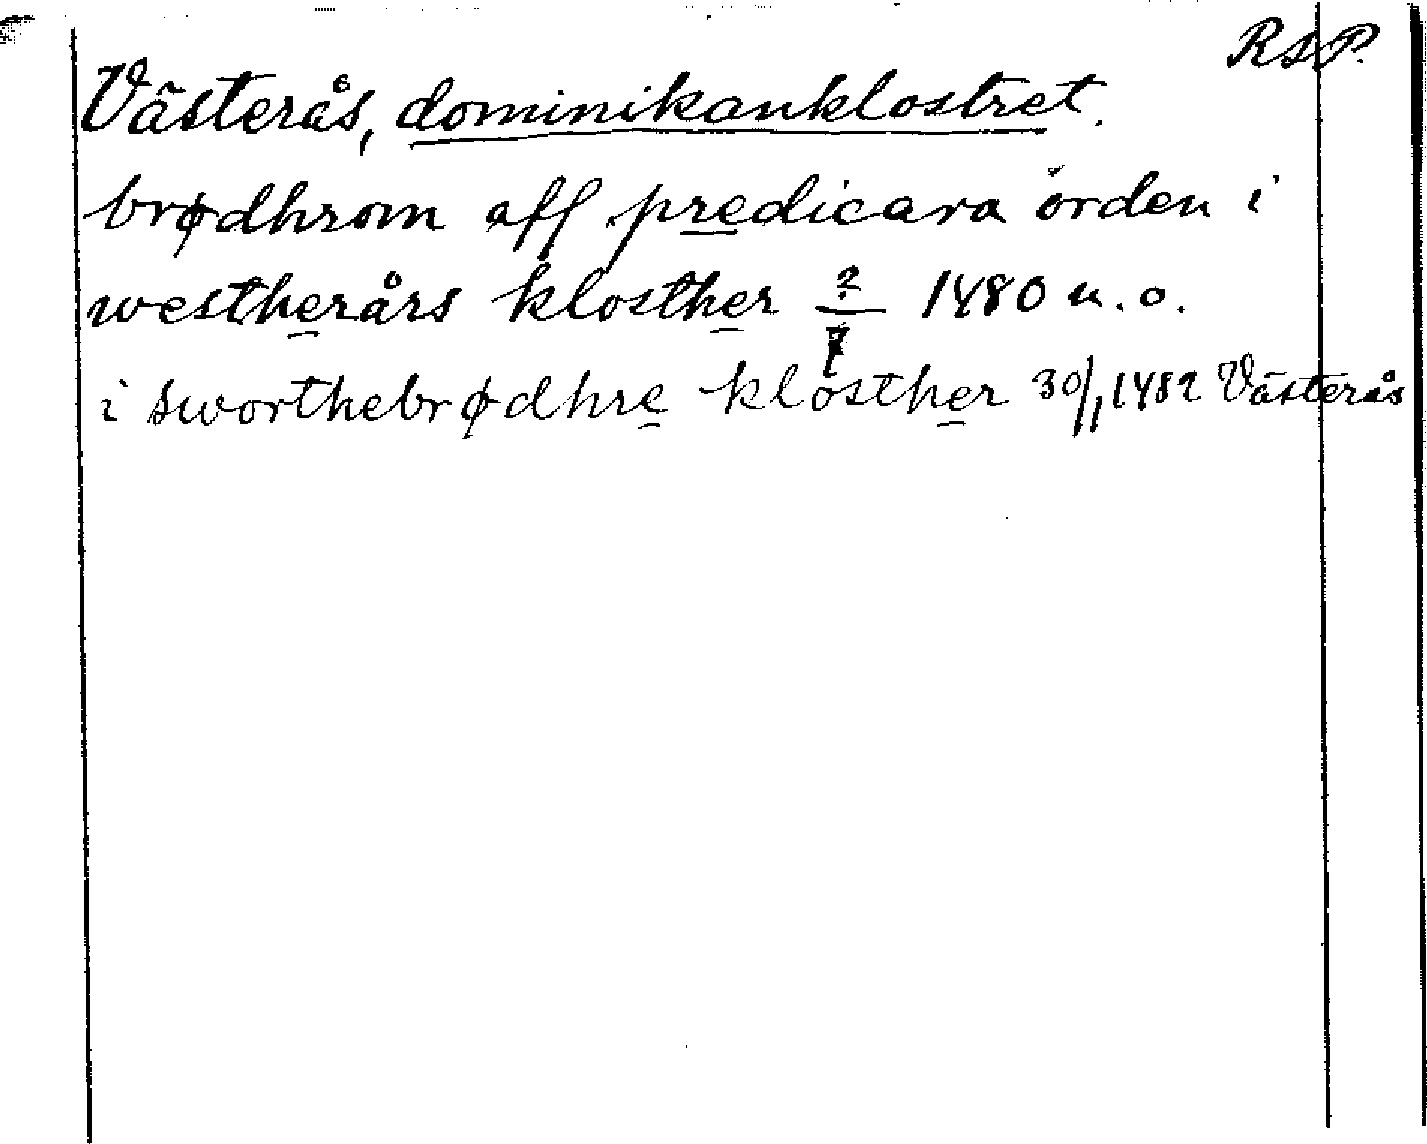 RAP.
Västerås, dominikanklostret.
brødhrom aff predicara orden i
westherårs klosther ?/7 1480 u.o.
i sworthebrødhre klosther 30/1 1482 Västerås